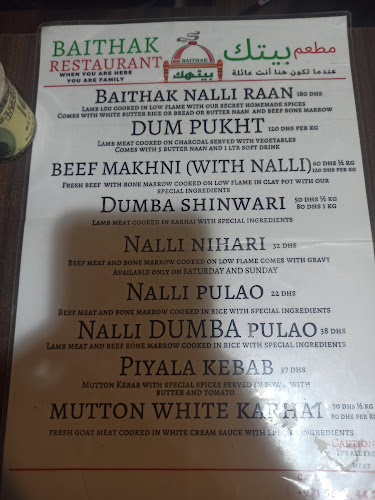 BAITHAK
RESTAURANT
WHEN YOU ARE HERE
YOU ARE FAMILY
BAITHAK
بيتهك
مطعم بيتك
عندما تكون هنا أنت عائلة
BAITHAK NALLI RAAN 180 DHS
LAMB LEG COOKED IN LOW FLAME WITH OUR SECRET HOMEMADE SPICES
COMES WITH WHITE BUTTER RICE OR BREAD OR BUTTER NAAN AND BEEF BONE MARROW
DUM PUKHT 120 DHS PER KG
LAMB MEAT COOKED ON CHARCOAL SERVED WITH VEGETABLES
COMES WITH 5 BUTTER NAAN AND 1 LTR SOFT DRINK
BEEF MAKHNI (WITH NALLI) 60 DHS ½ KG
120 DHS PER KG
FRESH BEEF WITH BONE MARROW COOKED ON LOW FLAME IN CLAY POT WITH OUR
SPECIAL INGREDIENTS
DUMBA SHINWARI 50 DHS ½ KG
80 DHS 1 KG
LAMB MEAT COOKED IN KARHAI WITH SPECIAL INGREDIENTS
NALLI NIHARI 32 DHS
BEEF MEAT AND BONE MARROW COOKED ON LOW FLAME COMES WITH GRAVY
AVAILABLE ONLY ON SATURDAY AND SUNDAY
NALLI PULAO 22 DHS
BEEF MEAT AND BONE MARROW COOKED IN RICE WITH SPECIAL INGREDIENTS
NALLI DUMBA PULAO 38 DHS
LAMB MEAT AND BEEF BONE MARROW COOKED IN RICE WITH SPECIAL INGREDIENTS
PIYALA KEBAB 37 DHS
MUTTON KEBAB WITH SPECIAL SPICES SERVED IN BOWL WITH
BUTTER AND TOMATO
MUTTON WHITE KARHAI 50 DHS ½ KG
90 DHS PER KG
FRESH GOAT MEAT COOKED IN WHITE CREAM SAUCE WITH SPECIAL INGREDIENTS
CAUTION
MEAT